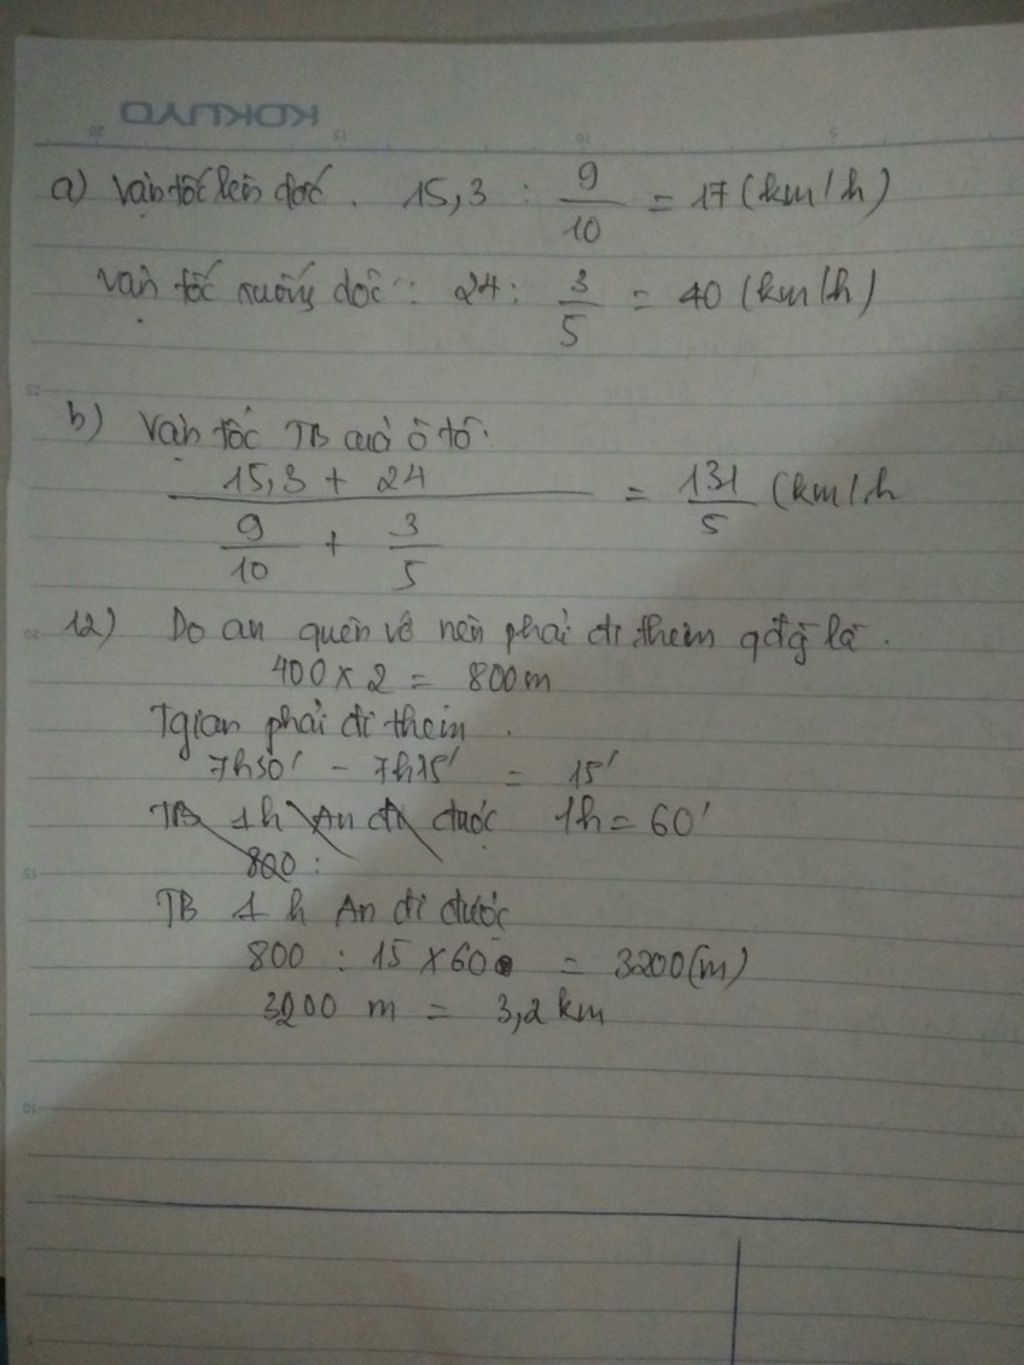 KOKUYO
20 15 10 5
a) Vận tốc lên dốc. 15,3 : 9/10 = 17 (km/h)
Vận tốc xuống dốc : 24 : 3/5 = 40 (km/h)
25
b) Vận tốc TB của ô tô:
(15,3 + 24)/(9/10 + 3/5) = 131/5 (km/h
20
12) Do an quên vở nên phải đi thêm qđg là.
400 x 2 = 800m
Tgian phải đi thêm.
7h30' - 7h15' = 15'
TB 1h An đi được 1h = 60'
15
800 :
TB 1 h An đi được
800 : 15 x 60 = 3200 (m)
3200 m = 3,2 km
10
5